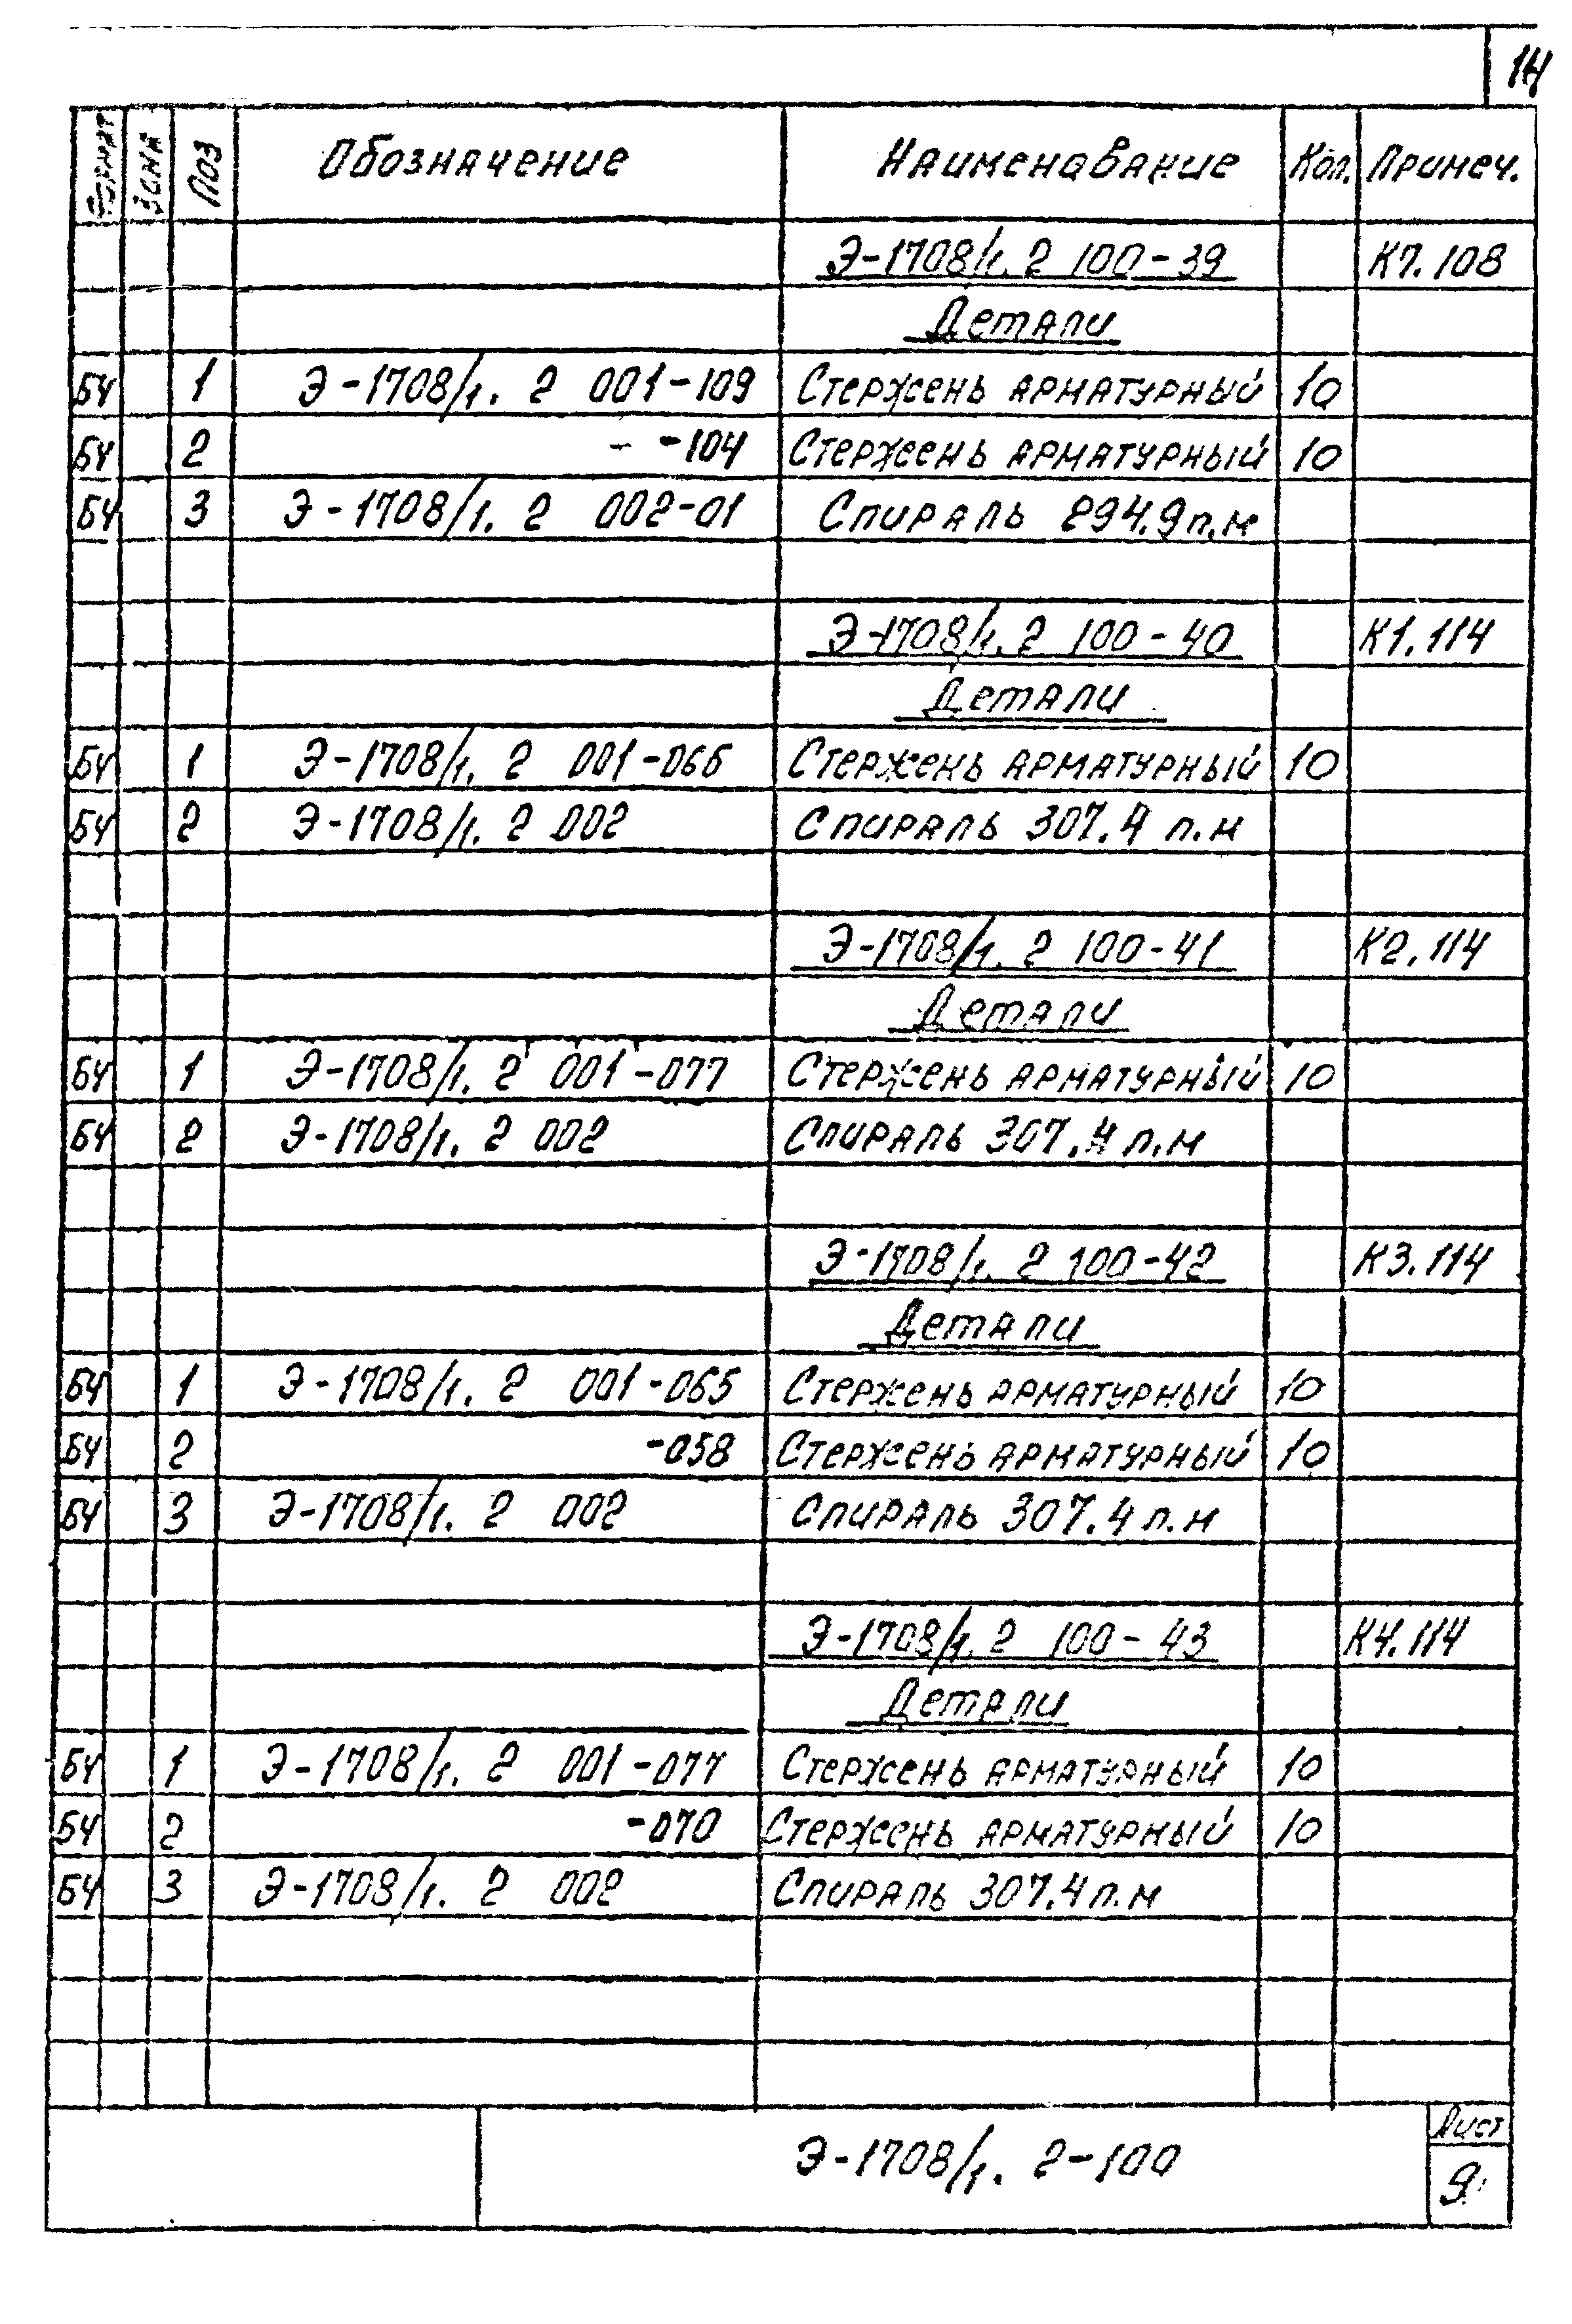 14
Формат Зона Поз Обозначение Наименование Кол. Примеч.
Э-1708/1. 2 100-39 К7.108
Детали
БЧ 1 Э-1708/1. 2 001-109 Стержень арматурный 10
БЧ 2 - -104 Стержень арматурный 10
БЧ 3 Э-1708/1. 2 002-01 Спираль 294.9п.м
Э-1708/1. 2 100-40 К1.114
Детали
БЧ 1 Э-1708/1. 2 001-066 Стержень арматурный 10
БЧ 2 Э-1708/1. 2 002 Спираль 307.4 п.м
Э-1708/1. 2 100-41 К2.114
Детали
БЧ 1 Э-1708/1. 2 001-077 Стержень арматурный 10
БЧ 2 Э-1708/1. 2 002 Спираль 307.4 п.м
Э-1708/1. 2 100-42 К3.114
Детали
БЧ 1 Э-1708/1. 2 001-065 Стержень арматурный 10
БЧ 2 -058 Стержень арматурный 10
БЧ 3 Э-1708/1. 2 002 Спираль 307.4 п.м
Э-1708/1. 2 100-43 К4.114
Детали
БЧ 1 Э-1708/1. 2 001-077 Стержень арматурный 10
БЧ 2 -070 Стержень арматурный 10
БЧ 3 Э-1708/1. 2 002 Спираль 307.4 п.м
Э-1708/1. 2-100
Лист
9